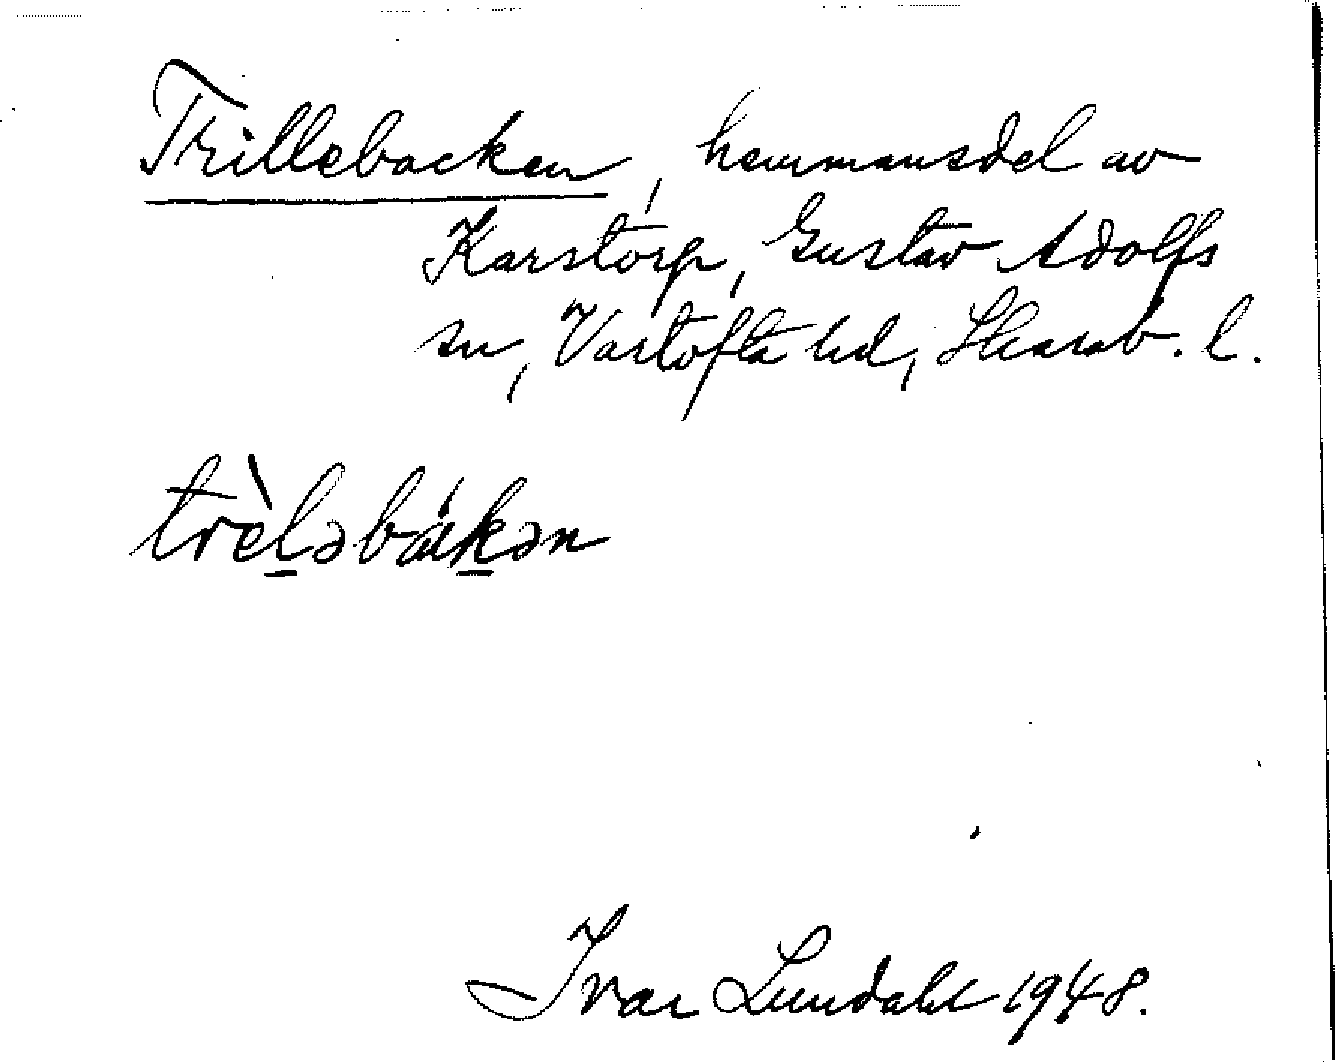 Trillebacken, hemmansdel av
Karstorp, Gustav Adolfs
sn, Vartofta hd, Skarab. l.
trèl̠əbák̠ən
Ivar Lundahl 1948.